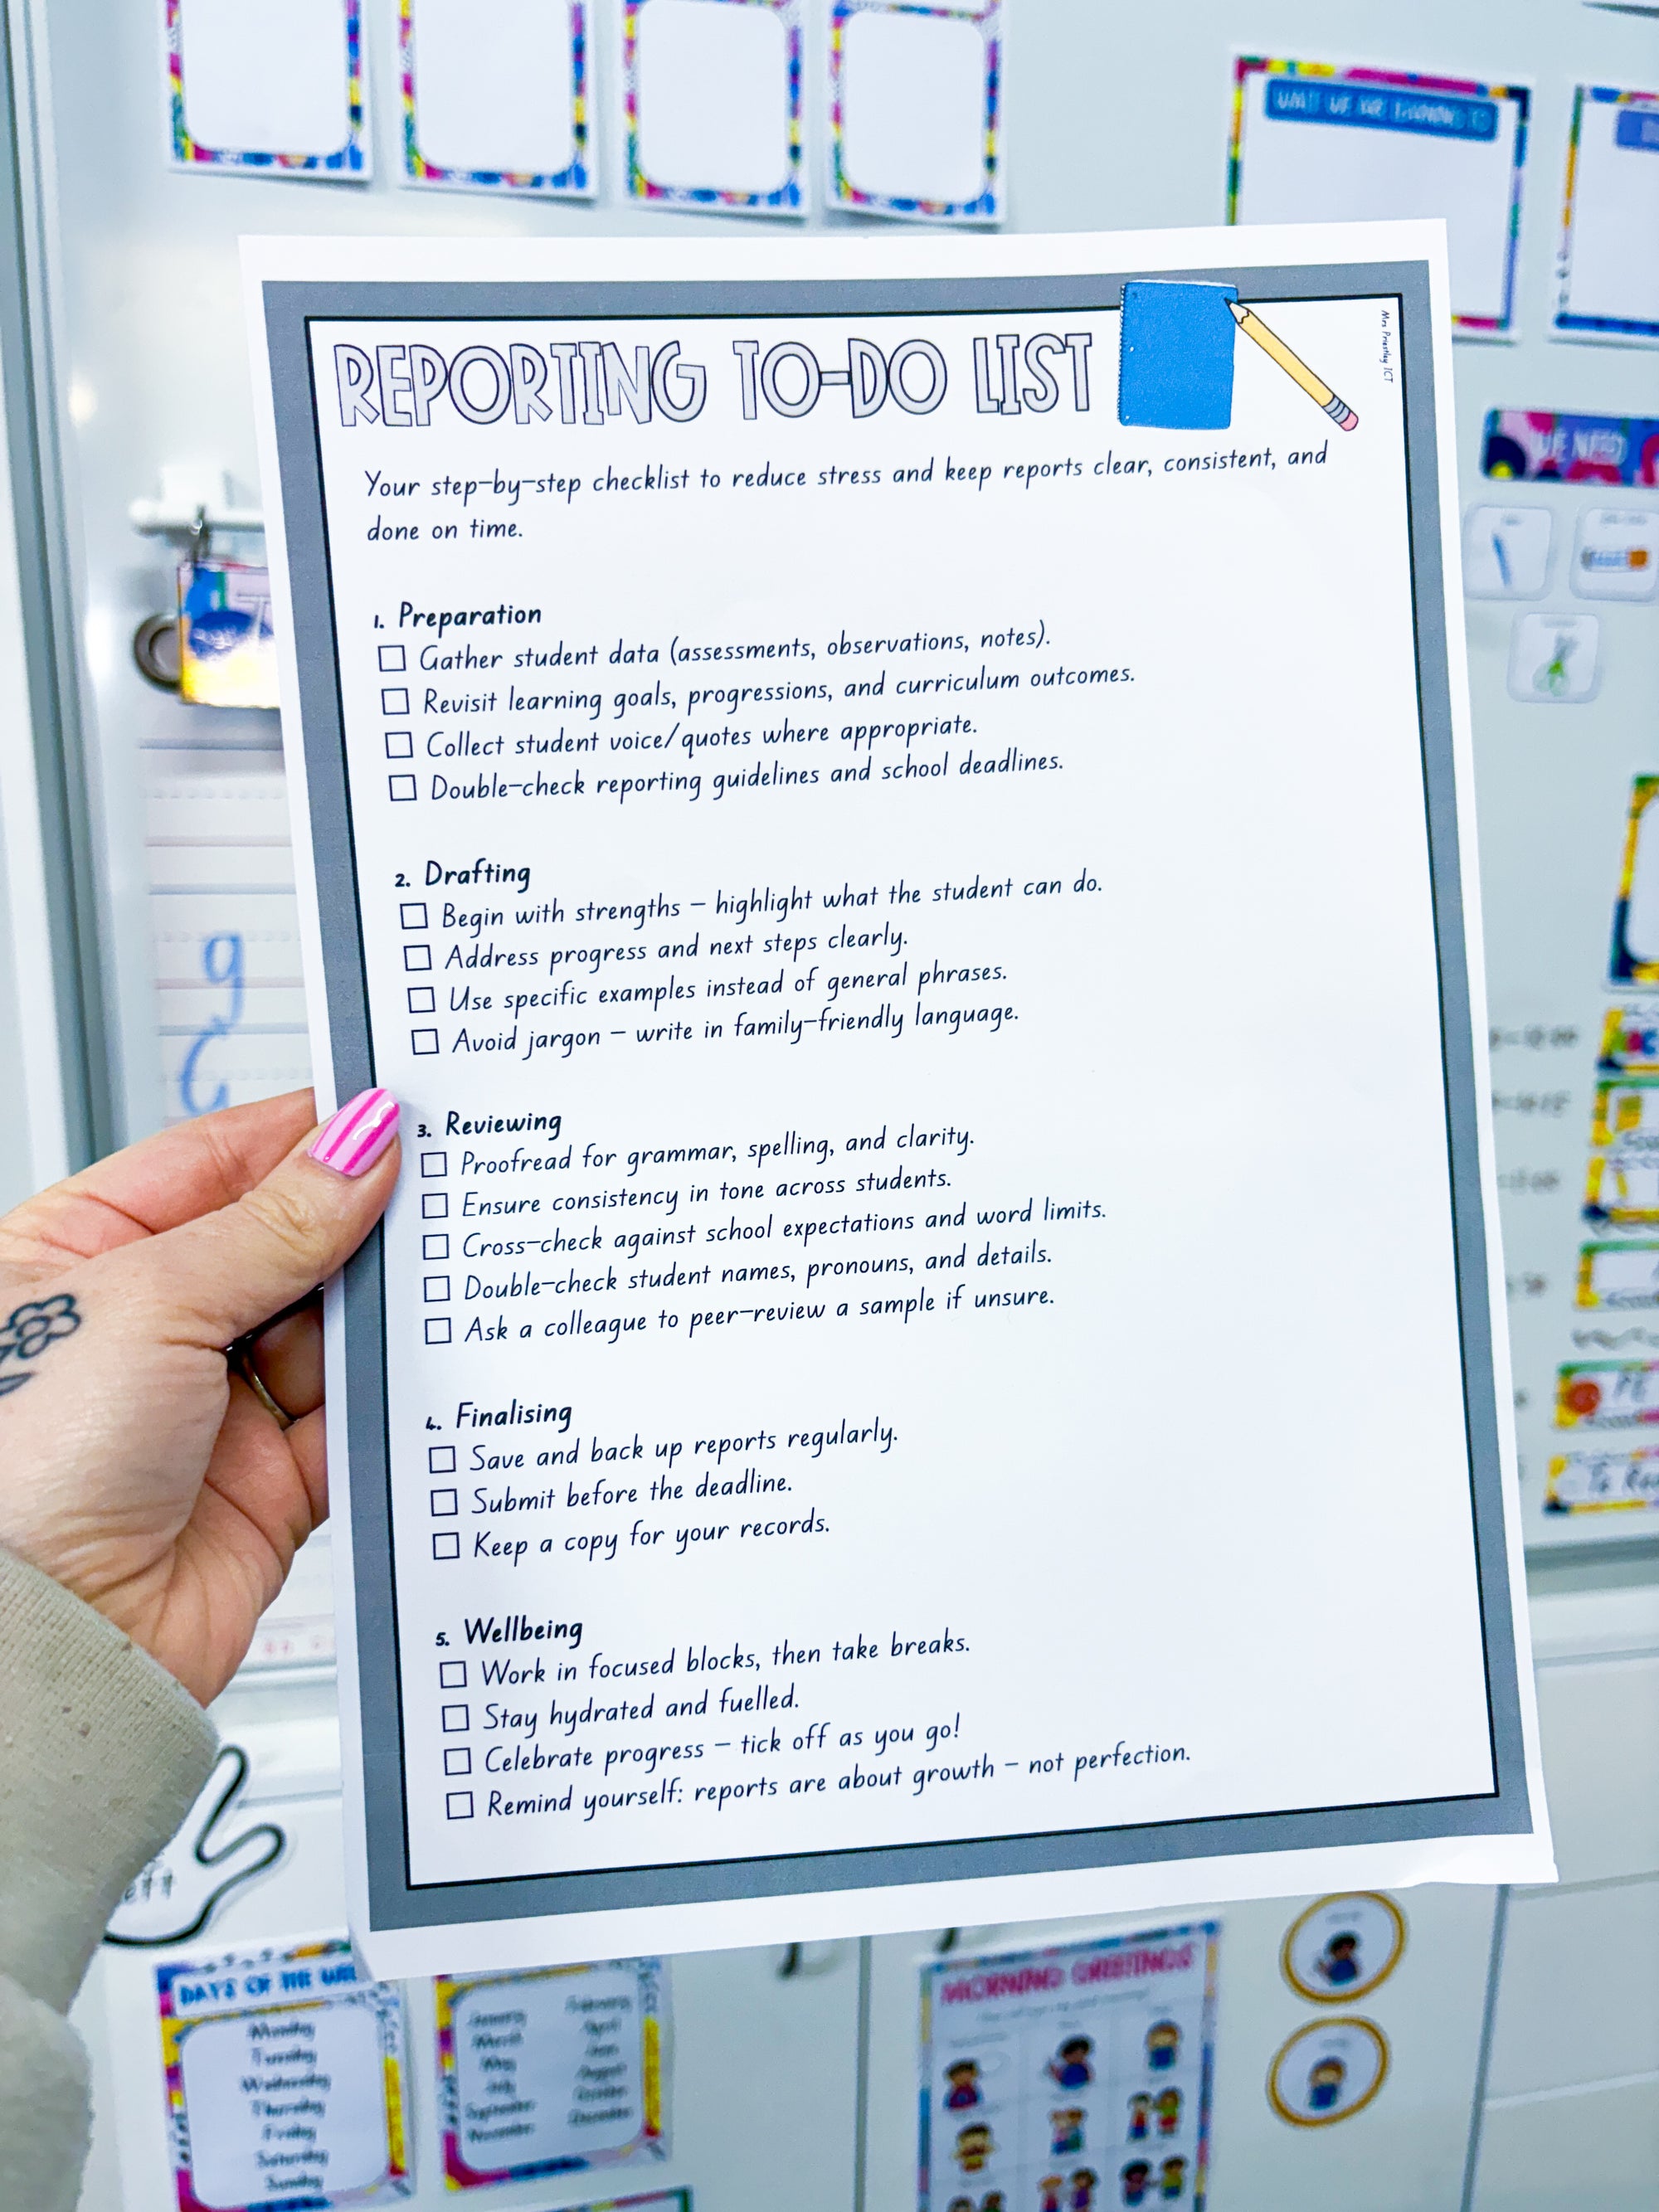 REPORTING TO-DO LIST
Mrs Priestley ICT
Your step-by-step checklist to reduce stress and keep reports clear, consistent, and
done on time.
1. Preparation
Gather student data (assessments, observations, notes).
Revisit learning goals, progressions, and curriculum outcomes.
Collect student voice/quotes where appropriate.
Double-check reporting guidelines and school deadlines.
2. Drafting
Begin with strengths – highlight what the student can do.
Address progress and next steps clearly.
Use specific examples instead of general phrases.
Avoid jargon – write in family-friendly language.
3. Reviewing
Proofread for grammar, spelling, and clarity.
Ensure consistency in tone across students.
Cross-check against school expectations and word limits.
Double-check student names, pronouns, and details.
Ask a colleague to peer-review a sample if unsure.
4. Finalising
Save and back up reports regularly.
Submit before the deadline.
Keep a copy for your records.
5. Wellbeing
Work in focused blocks, then take breaks.
Stay hydrated and fuelled.
Celebrate progress – tick off as you go!
Remind yourself: reports are about growth – not perfection.
WE NEED
g
DAYS OF THE
Monday
Tuesday
Wednesday
Thursday
Friday
Saturday
Sunday
January
February
March
April
May
June
July
August
September
October
November
December
MORNING GREETINGS